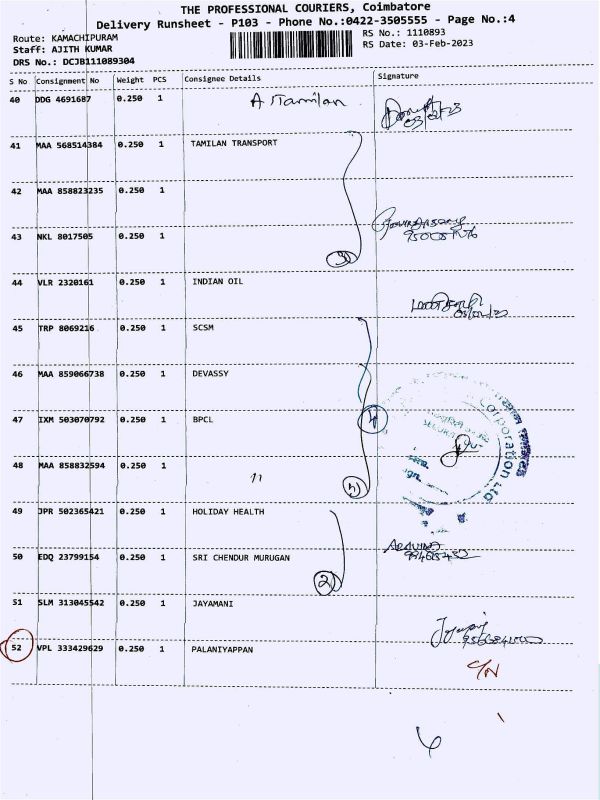 THE PROFESSIONAL COURIERS, Coimbatore
Delivery Runsheet - P103 - Phone No.:0422-3505555 - Page No.:4
Route: KAMACHIPURAM
RS No.: 1110893
Staff: AJITH KUMAR
RS Date: 03-Feb-2023
DRS No.: DCJB111089304
S No Consignment No Weight PCS Consignee Details Signature
40 DDG 4691687 0.250 1 A Tamilan
41 MAA 568514384 0.250 1 TAMILAN TRANSPORT
42 MAA 858823235 0.250 1
43 NKL 8017505 0.250 1
3
44 VLR 2320161 0.250 1 INDIAN OIL
45 TRP 8069216 0.250 1 SCSM
46 MAA 859066738 0.250 1 DEVASSY
47 IXM 503070792 0.250 1 BPCL
4
48 MAA 858832594 0.250 1 11
Corporation Ltd
49 JPR 502365421 0.250 1 HOLIDAY HEALTH
50 EDQ 23799154 0.250 1 SRI CHENDUR MURUGAN
ARAVIND
2
51 SLM 313045542 0.250 1 JAYAMANI
52 VPL 333429629 0.250 1 PALANIYAPPAN
C/N
6